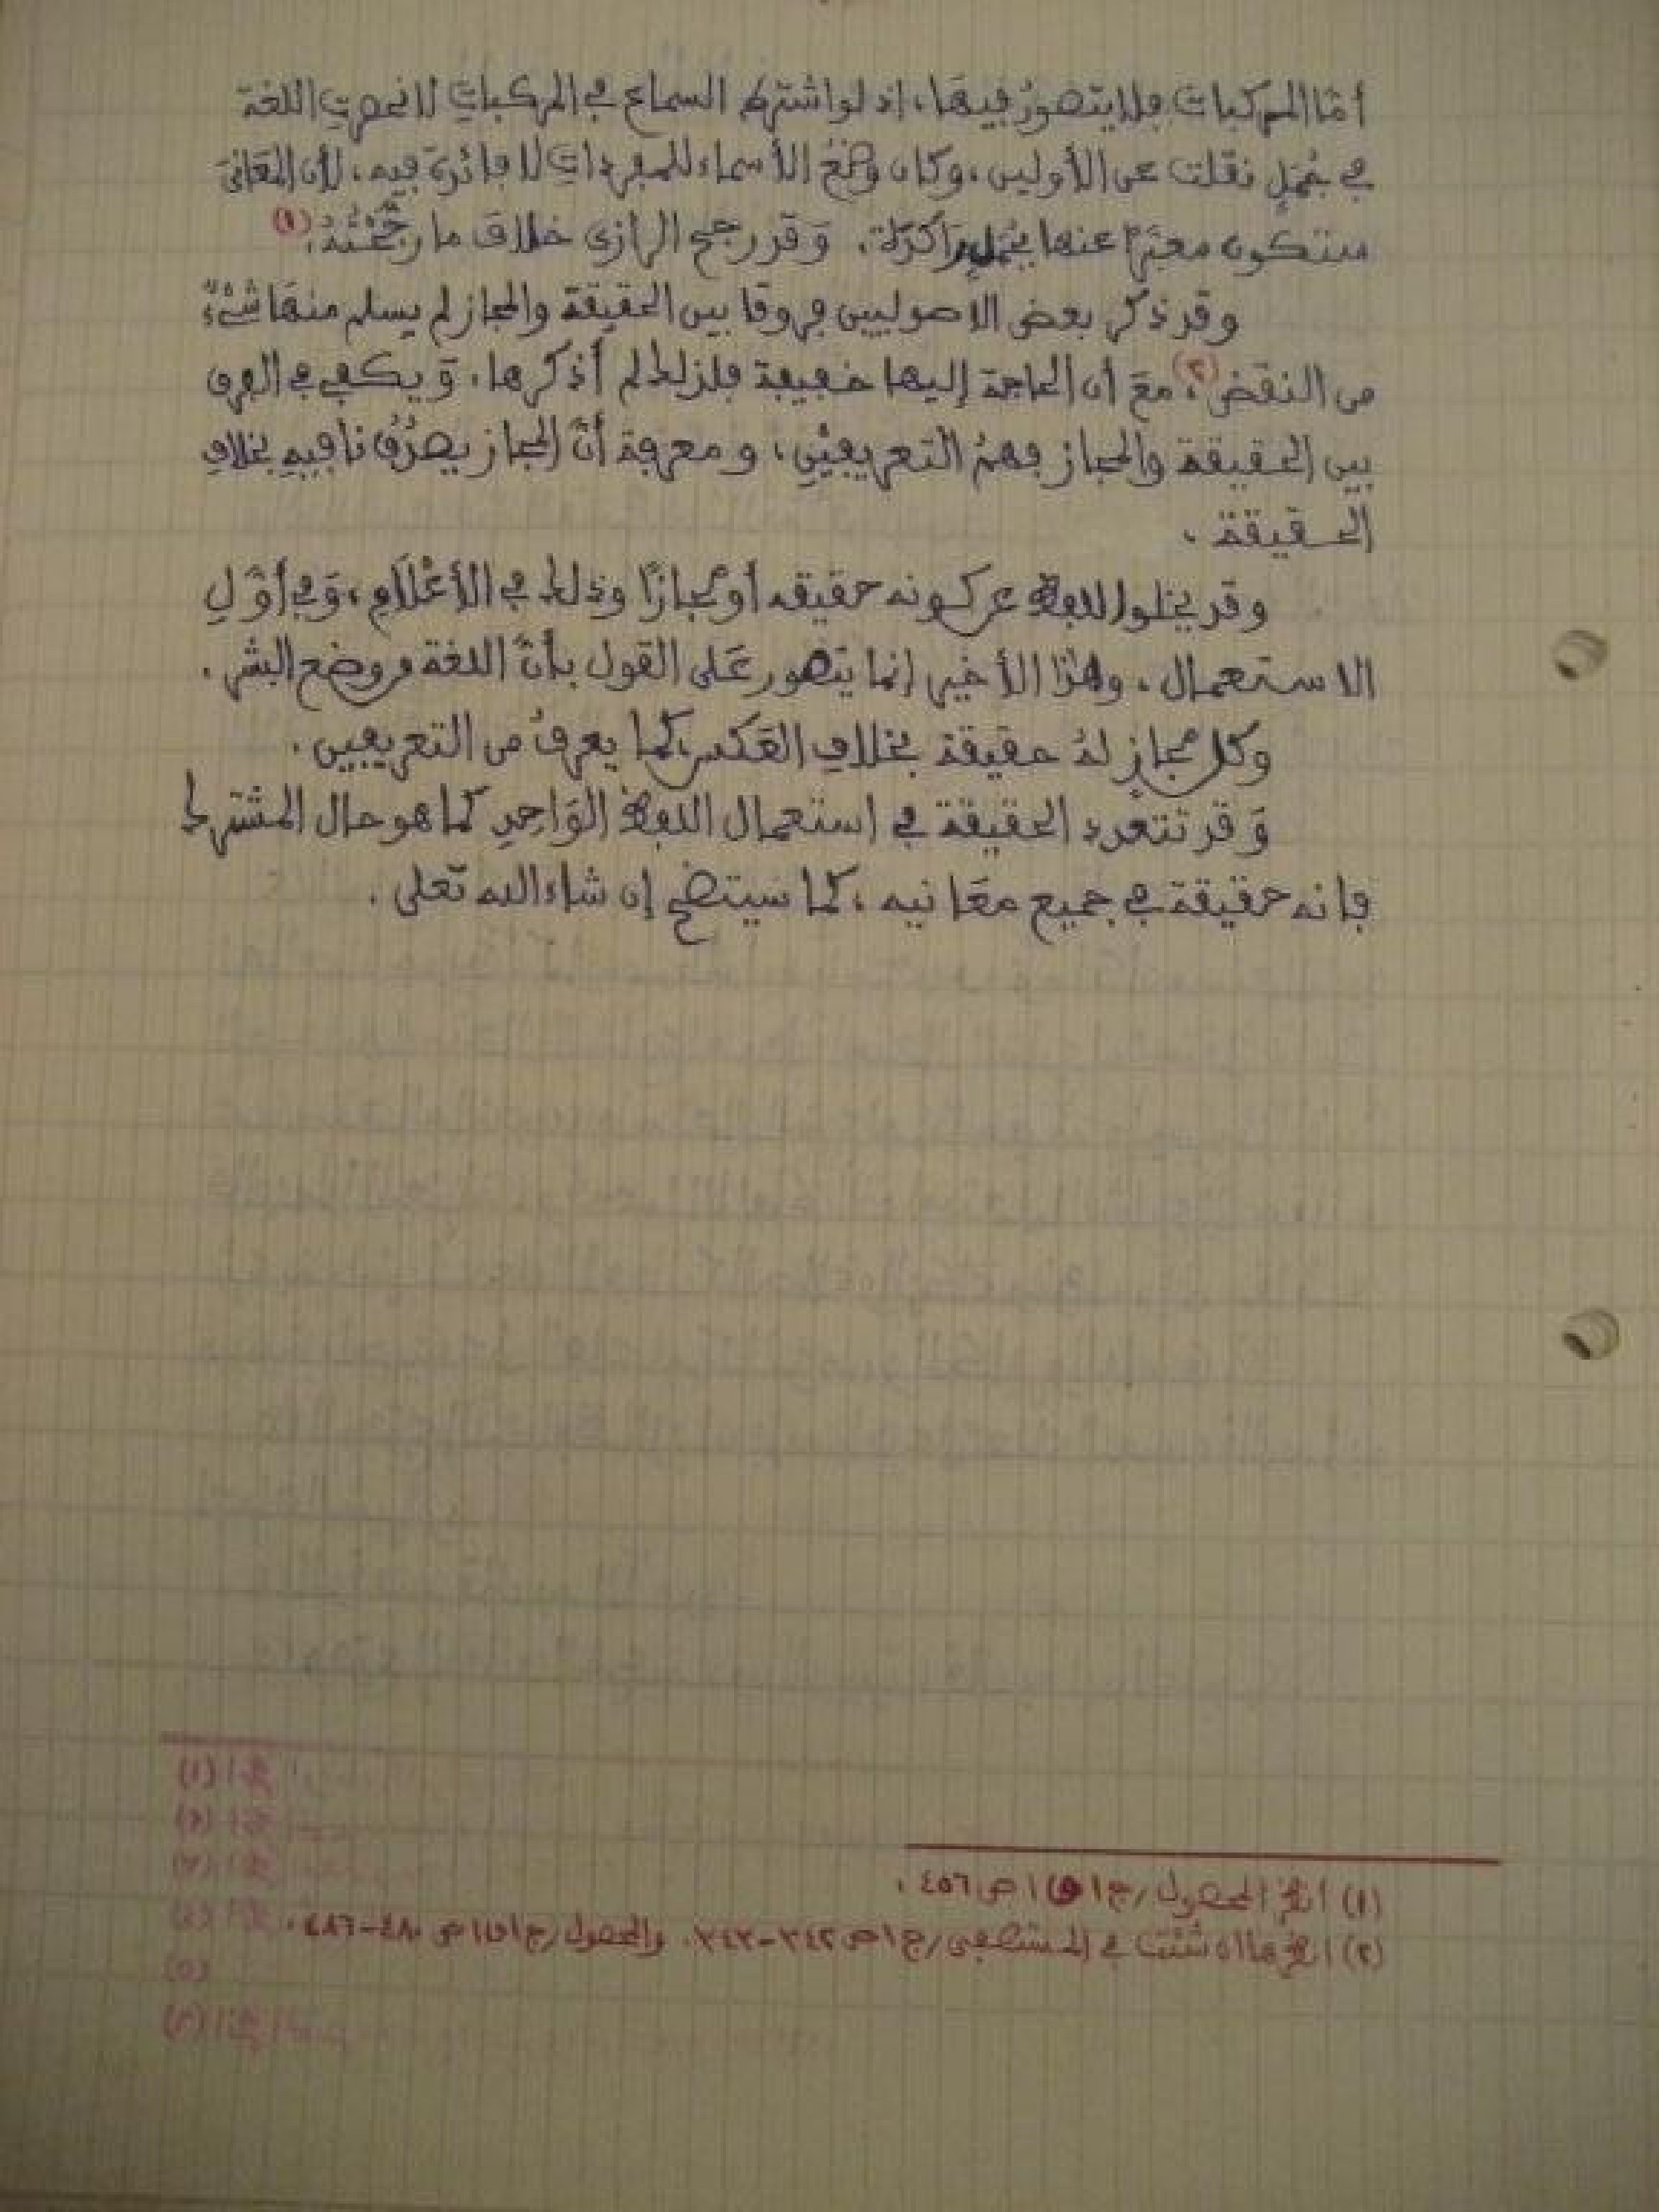 أمّا المركبات فلا يتصورُ فيهَا، إذ لو اشترط السماع في المركباتِ لانحصرتِ اللغة
في جُمَلٍ نقلت عن الأولين، وكان وضعُ الأسماء للمفرداتِ لا فائدةَ فيه، لأن المعَانيَ
ستكون معبَّرا عنها بجُملٍ مَدركة. وَقد رجح الرازي خلافَ ما رجَّحْتُهُ، (١)
وقد ذكر بعض الاصوليين فروقا بين الحقيقة والمجاز لم يسلم منهَا شَيْءٌ
من النقض (٢)، معَ أن الحاجة إليها خفيفة فلذلك لم أذكرها. وَيكفي في الفرق
بين الحقيقة والمجاز فهمُ التعريفيْنِ، ومعرفة أنَّ المجاز يصدُقُ نافيهِ بخلافِ
الحقيقة.
وقد يخلوا اللفظ عن كونه حقيقه أو مجازًا وذلك في الأعْلَامِ، وَفي أوَّلِ
الاستعمال، وهٰذا الأخير إنما يتصور عَلى القول بأنَّ اللغة من وضع البشر.
وكل مجازٍ لهُ حقيقة بخلافِ العَكس، كما يعرفُ من التعريفين.
وَقد تتعدد الحقيقة في استعمال اللفظ الوَاحِدِ كما هو حال المشترك
فإنه حقيقة في جميع معَانيه، كما سَيتضح إن شاء الله تعَلى.
(١) انظر المحصول/ج١ق١ص٤٥٦.
(٢) انظرها ان شئت في المستصفى/ج١ص٣٤٢-٣٤٣. والمحصول/ج١ق١ص٤٨٠-٤٨٦.